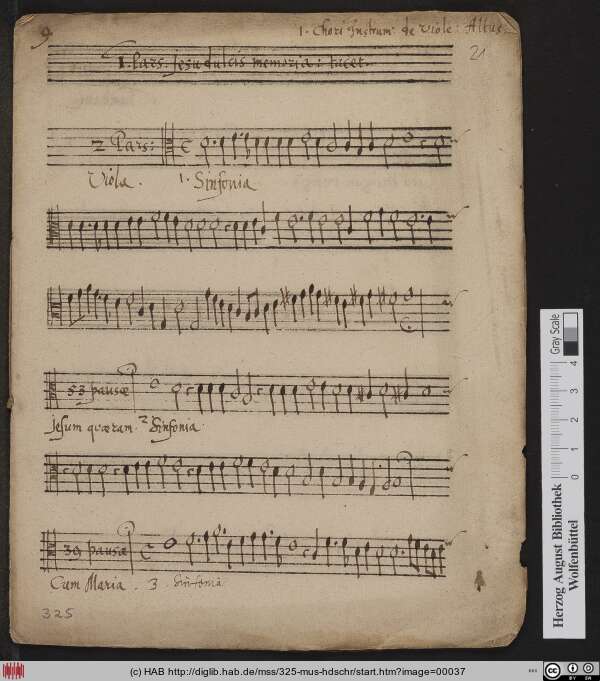 9
1. Chori Instrum: de Viole: Altus.
21
1. Pars. Jesu dulcis memoria: tacet.
2 Pars:
Viola. 1. Sinfonia
53 pausæ
Jesum quæram. 2 Sinfonia.
39 pausæ
Cum Maria. 3. Sinfonia
325
Gray Scale
0 1 2 3 4
Herzog August Bibliothek
Wolfenbüttel
(c) HAB http://diglib.hab.de/mss/325-mus-hdschr/start.htm?image=00037
cc BY SA